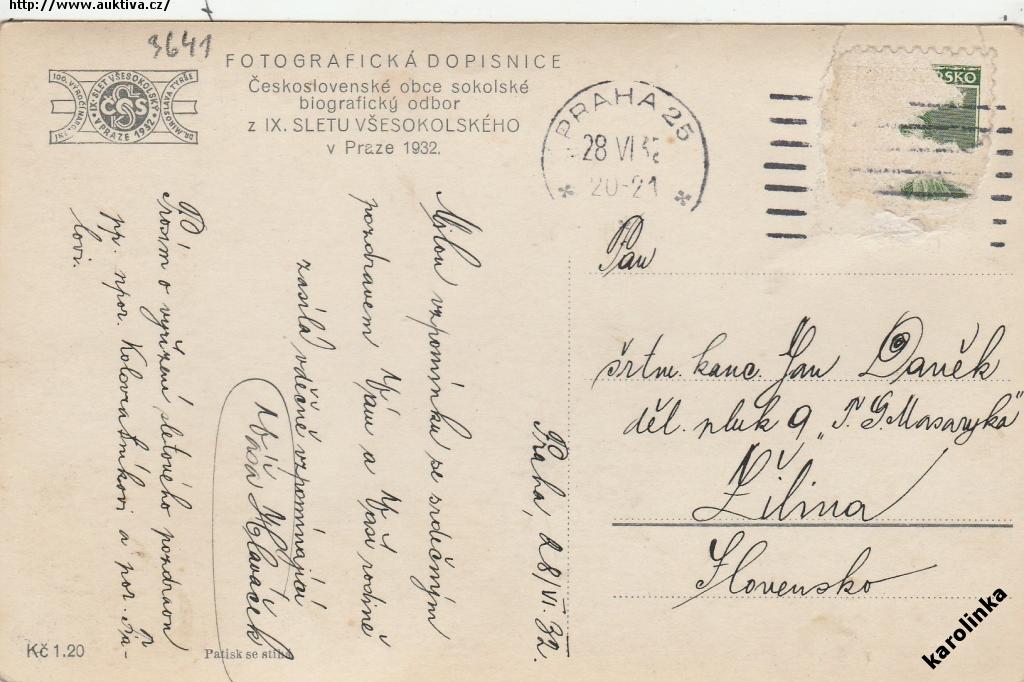 http://www.auktiva.cz/
3641
FOTOGRAFICKÁ DOPISNICE
Československé obce sokolské
biografický odbor
z IX. SLETU VŠESOKOLSKÉHO
v Praze 1932.
IX. SLET VŠESOKOLSKÝ
ČOS
V PRAZE 1932
PRAHA 25
28 VI 32
20-21
RSKO
Praha, 28/VI. 32.
Milou vzpomínku se srdečným
pozdravem Vám a Vaší rodině
zasílá vděčně vzpomínající
Váš Hlaváček
P.
Prosím o vyřízení sletového pozdravu
pp. npor. Kolovratníkovi a por.
lovi.
Pan
štrtm. kanc. Jan Daněk
děl. pluk 9 „T. G. Masaryka"
Žilina
Slovensko
Kč 1.20
Patisk se stíhá
karolinka